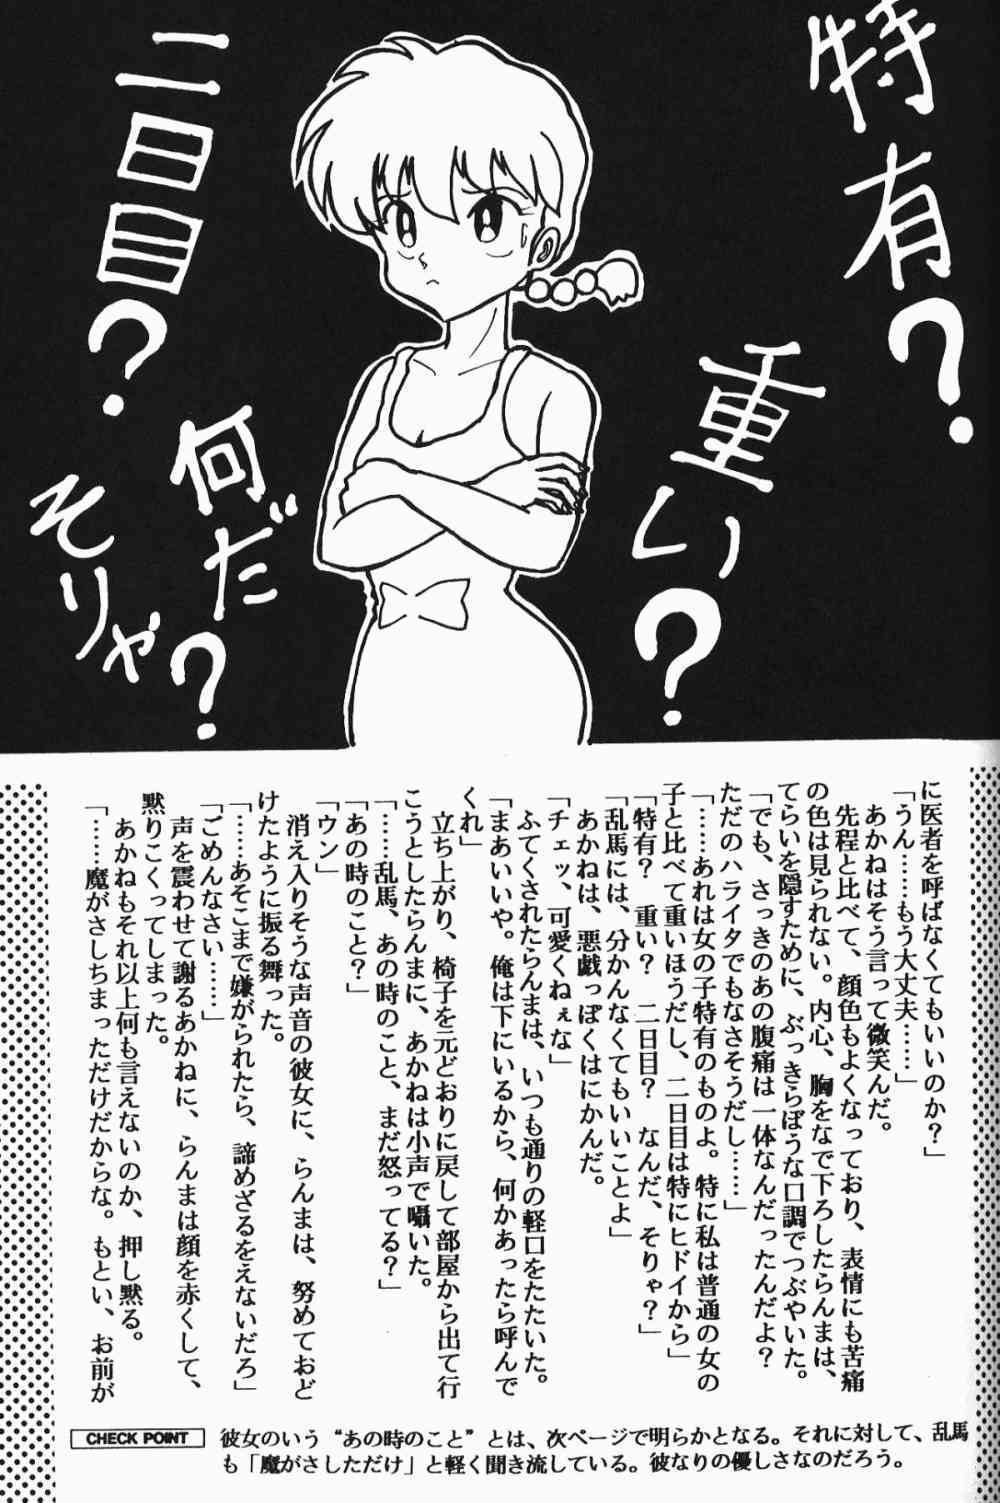 特有?
重い?
二日目?
何だ
そりゃ?
に医者を呼ばなくてもいいのか?」
「うん……もう大丈夫……」
あかねはそう言って微笑んだ。
先程と比べて、顔色もよくなっており、表情にも苦痛
の色は見られない。内心、胸をなで下ろしたらんまは、
てらいを隠すために、ぶっきらぼうな口調でつぶやいた。
「でも、さっきのあの腹痛は一体なんだったんだよ?
ただのハライタでもなさそうだし……」
「……あれは女の子特有のものよ。特に私は普通の女の
子と比べて重いほうだし、二日目は特にヒドイから」
「特有? 重い? 二日目? なんだ、そりゃ?」
「乱馬には、分かんなくてもいいことよ」
あかねは、悪戯っぽくはにかんだ。
「チェッ、可愛くねぇな」
ふてくされたらんまは、いつも通りの軽口をたたいた。
「まあいいや。俺は下にいるから、何かあったら呼んで
くれ」
立ち上がり、椅子を元どおりに戻して部屋から出て行
こうとしたらんまに、あかねは小声で囁いた。
「……乱馬、あの時のこと、まだ怒ってる?」
「あの時のこと?」
「ウン」
消え入りそうな声音の彼女に、らんまは、努めておど
けたように振る舞った。
「……あそこまで嫌がられたら、諦めざるをえないだろ」
「ごめんなさい……」
声を震わせて謝るあかねに、らんまは顔を赤くして、
黙りこくってしまった。
あかねもそれ以上何も言えないのか、押し黙る。
「……魔がさしちまっただけだからな。もとい、お前が
CHECK POINT
彼女のいう“あの時のこと”とは、次ページで明らかとなる。それに対して、乱馬
も「魔がさしただけ」と軽く聞き流している。彼なりの優しさなのだろう。